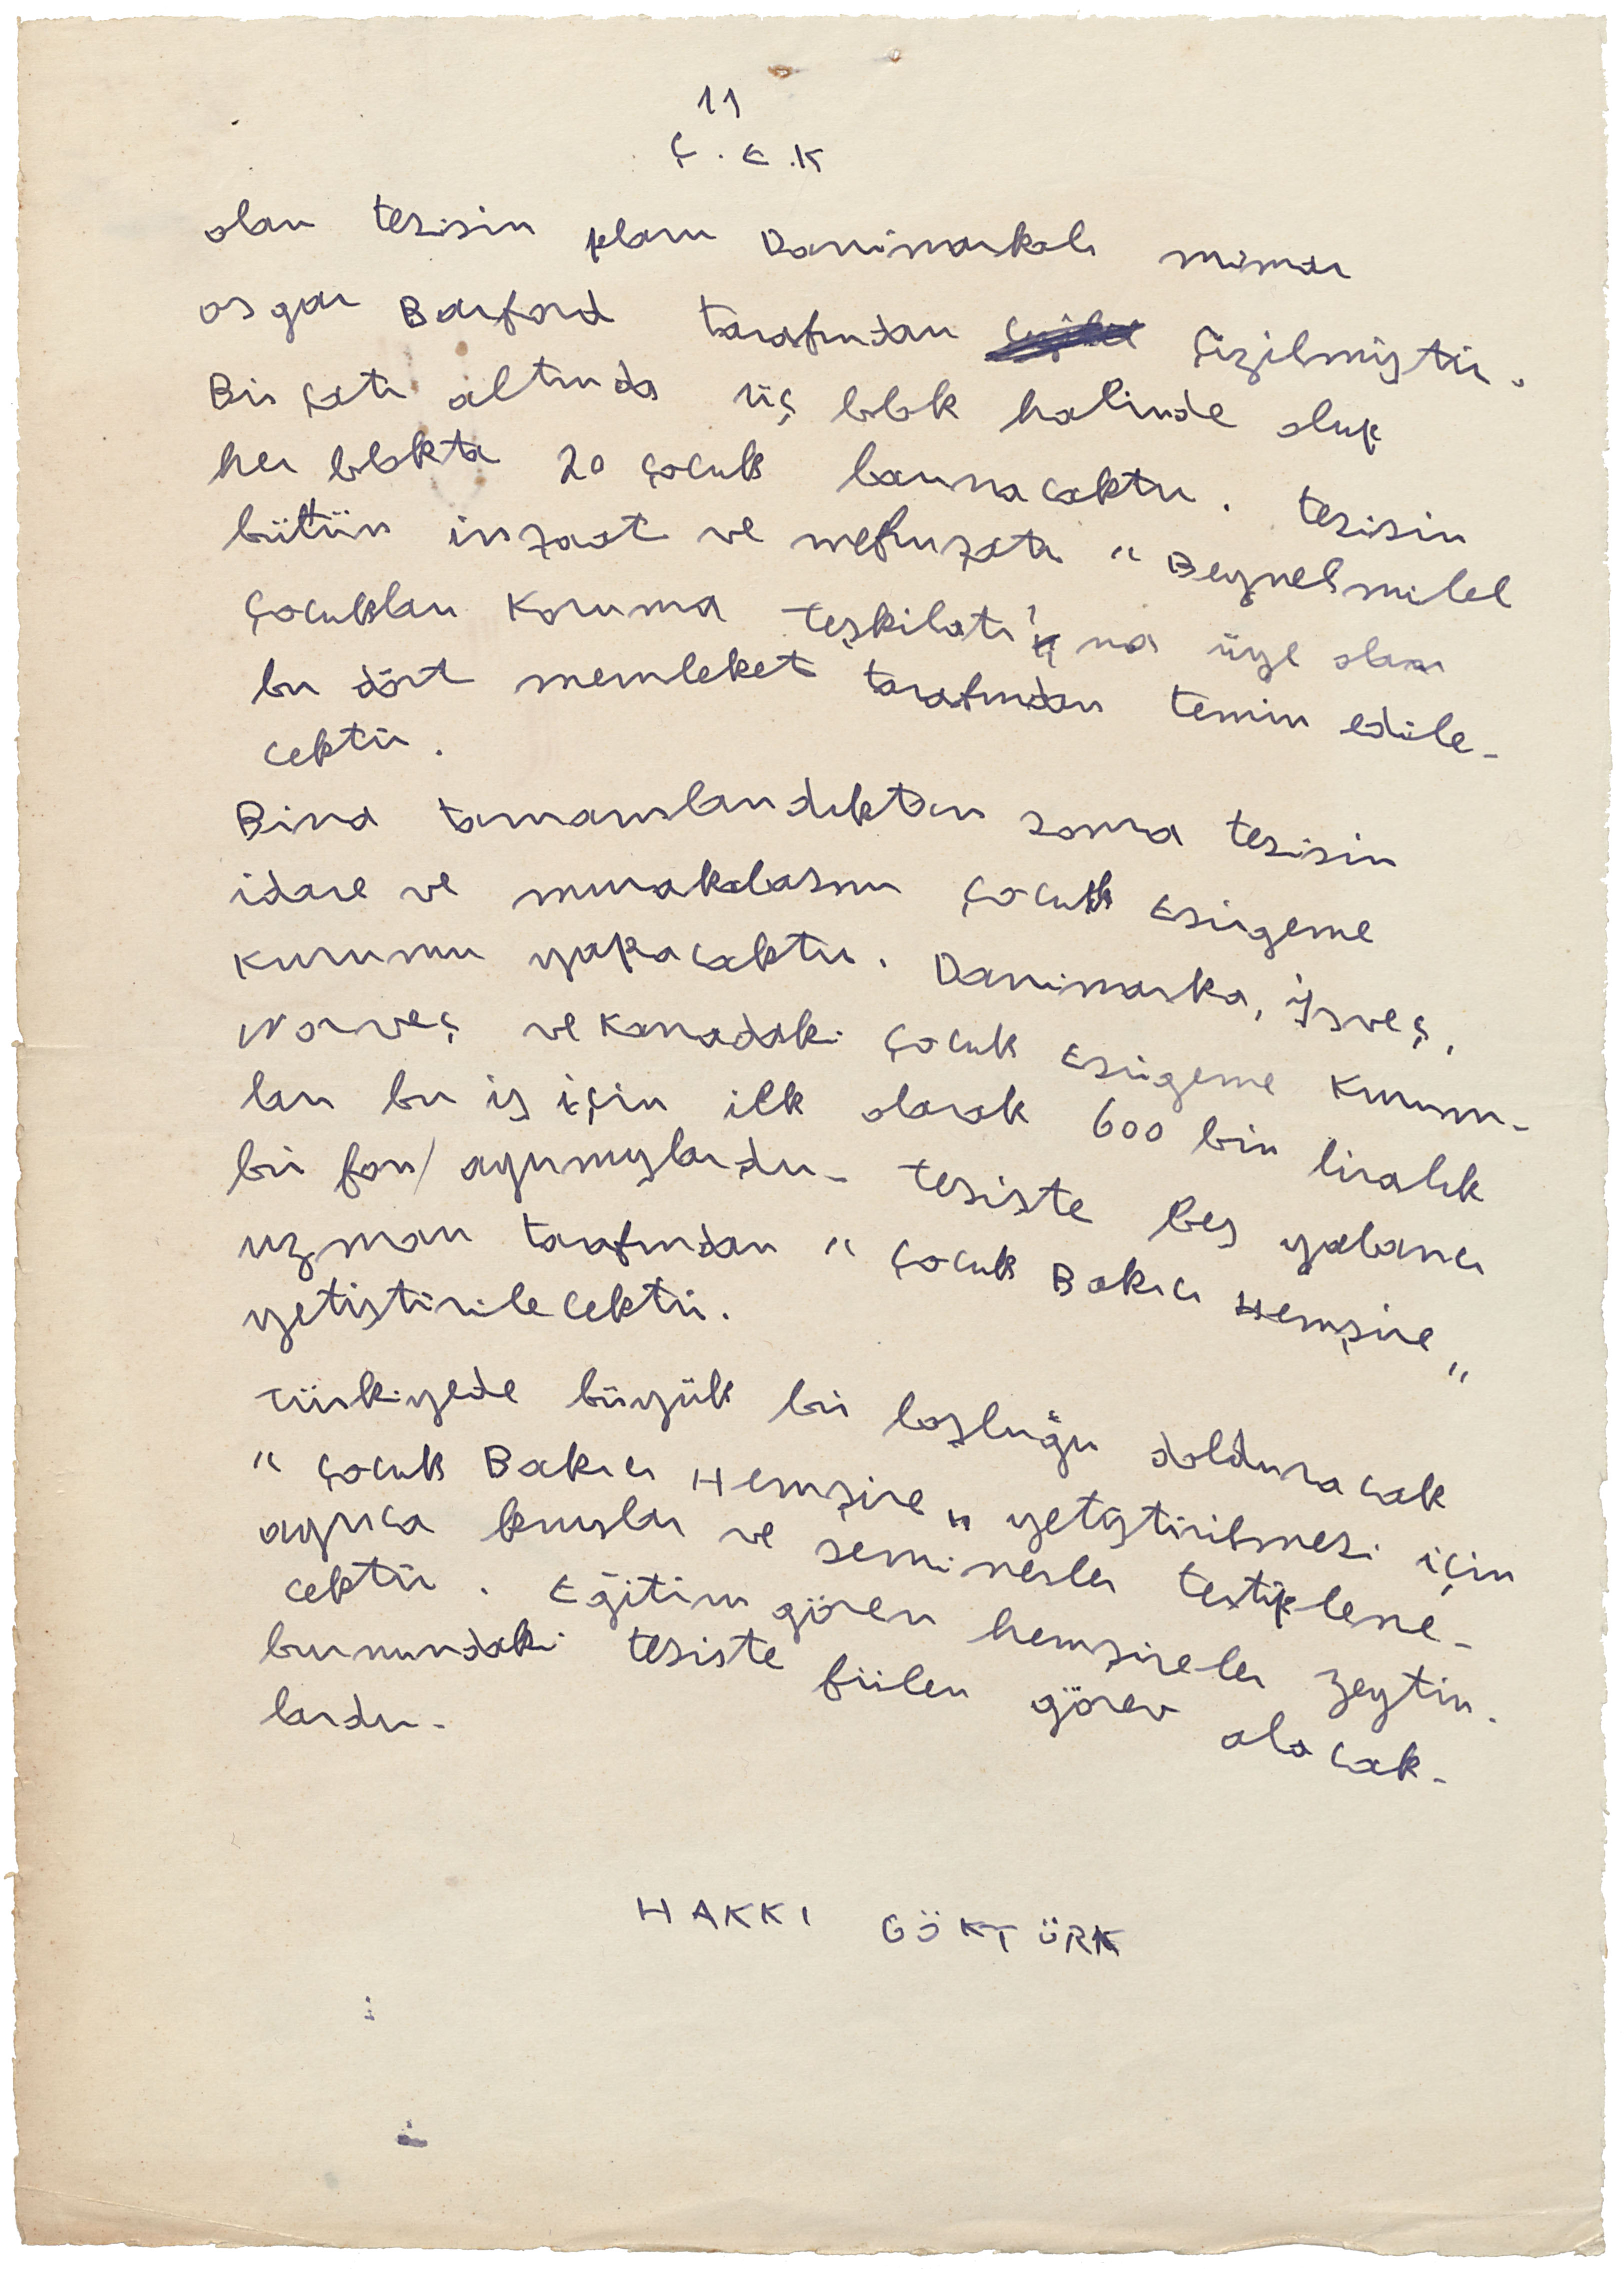 11
Ç.E.K
olan tesisin planı Danimarkalı mimar
osgar Barford tarafından çizilmiştir.
Bir çatı altında üç blok halinde olup
her blokta 20 çocuk barınacaktır. tesisin
bütün inşaat ve mefruşatı " Beynelmilel
Çocukları Koruma Teşkilatı'na üye olan
bu dört memleket tarafından temin edile-
cektir.
Bina tamamlandıktan sonra tesisin
idare ve murakabasını Çocuk Esirgeme
Kurumu yapacaktır. Danimarka, isveç,
Norveç ve Kanadaki Çocuk Esirgeme Kurum-
ları bu iş için ilk olarak 600 bin liralık
bir fon ayırmışlardır- tesiste beş yabancı
uzman tarafından " Çocuk Bakıcı Hemşire "
yetiştirilecektir.
Türkiyede büyük bir boşluğu dolduracak
" Çocuk Bakıcı Hemşire " yetiştirilmesi için
ayrıca kurslar ve seminerler tertiplene-
cektir. Eğitim gören hemşireler zeytin-
burnundaki tesiste fiilen görev alacak-
lardır-
HAKKI GÖKTÜRK